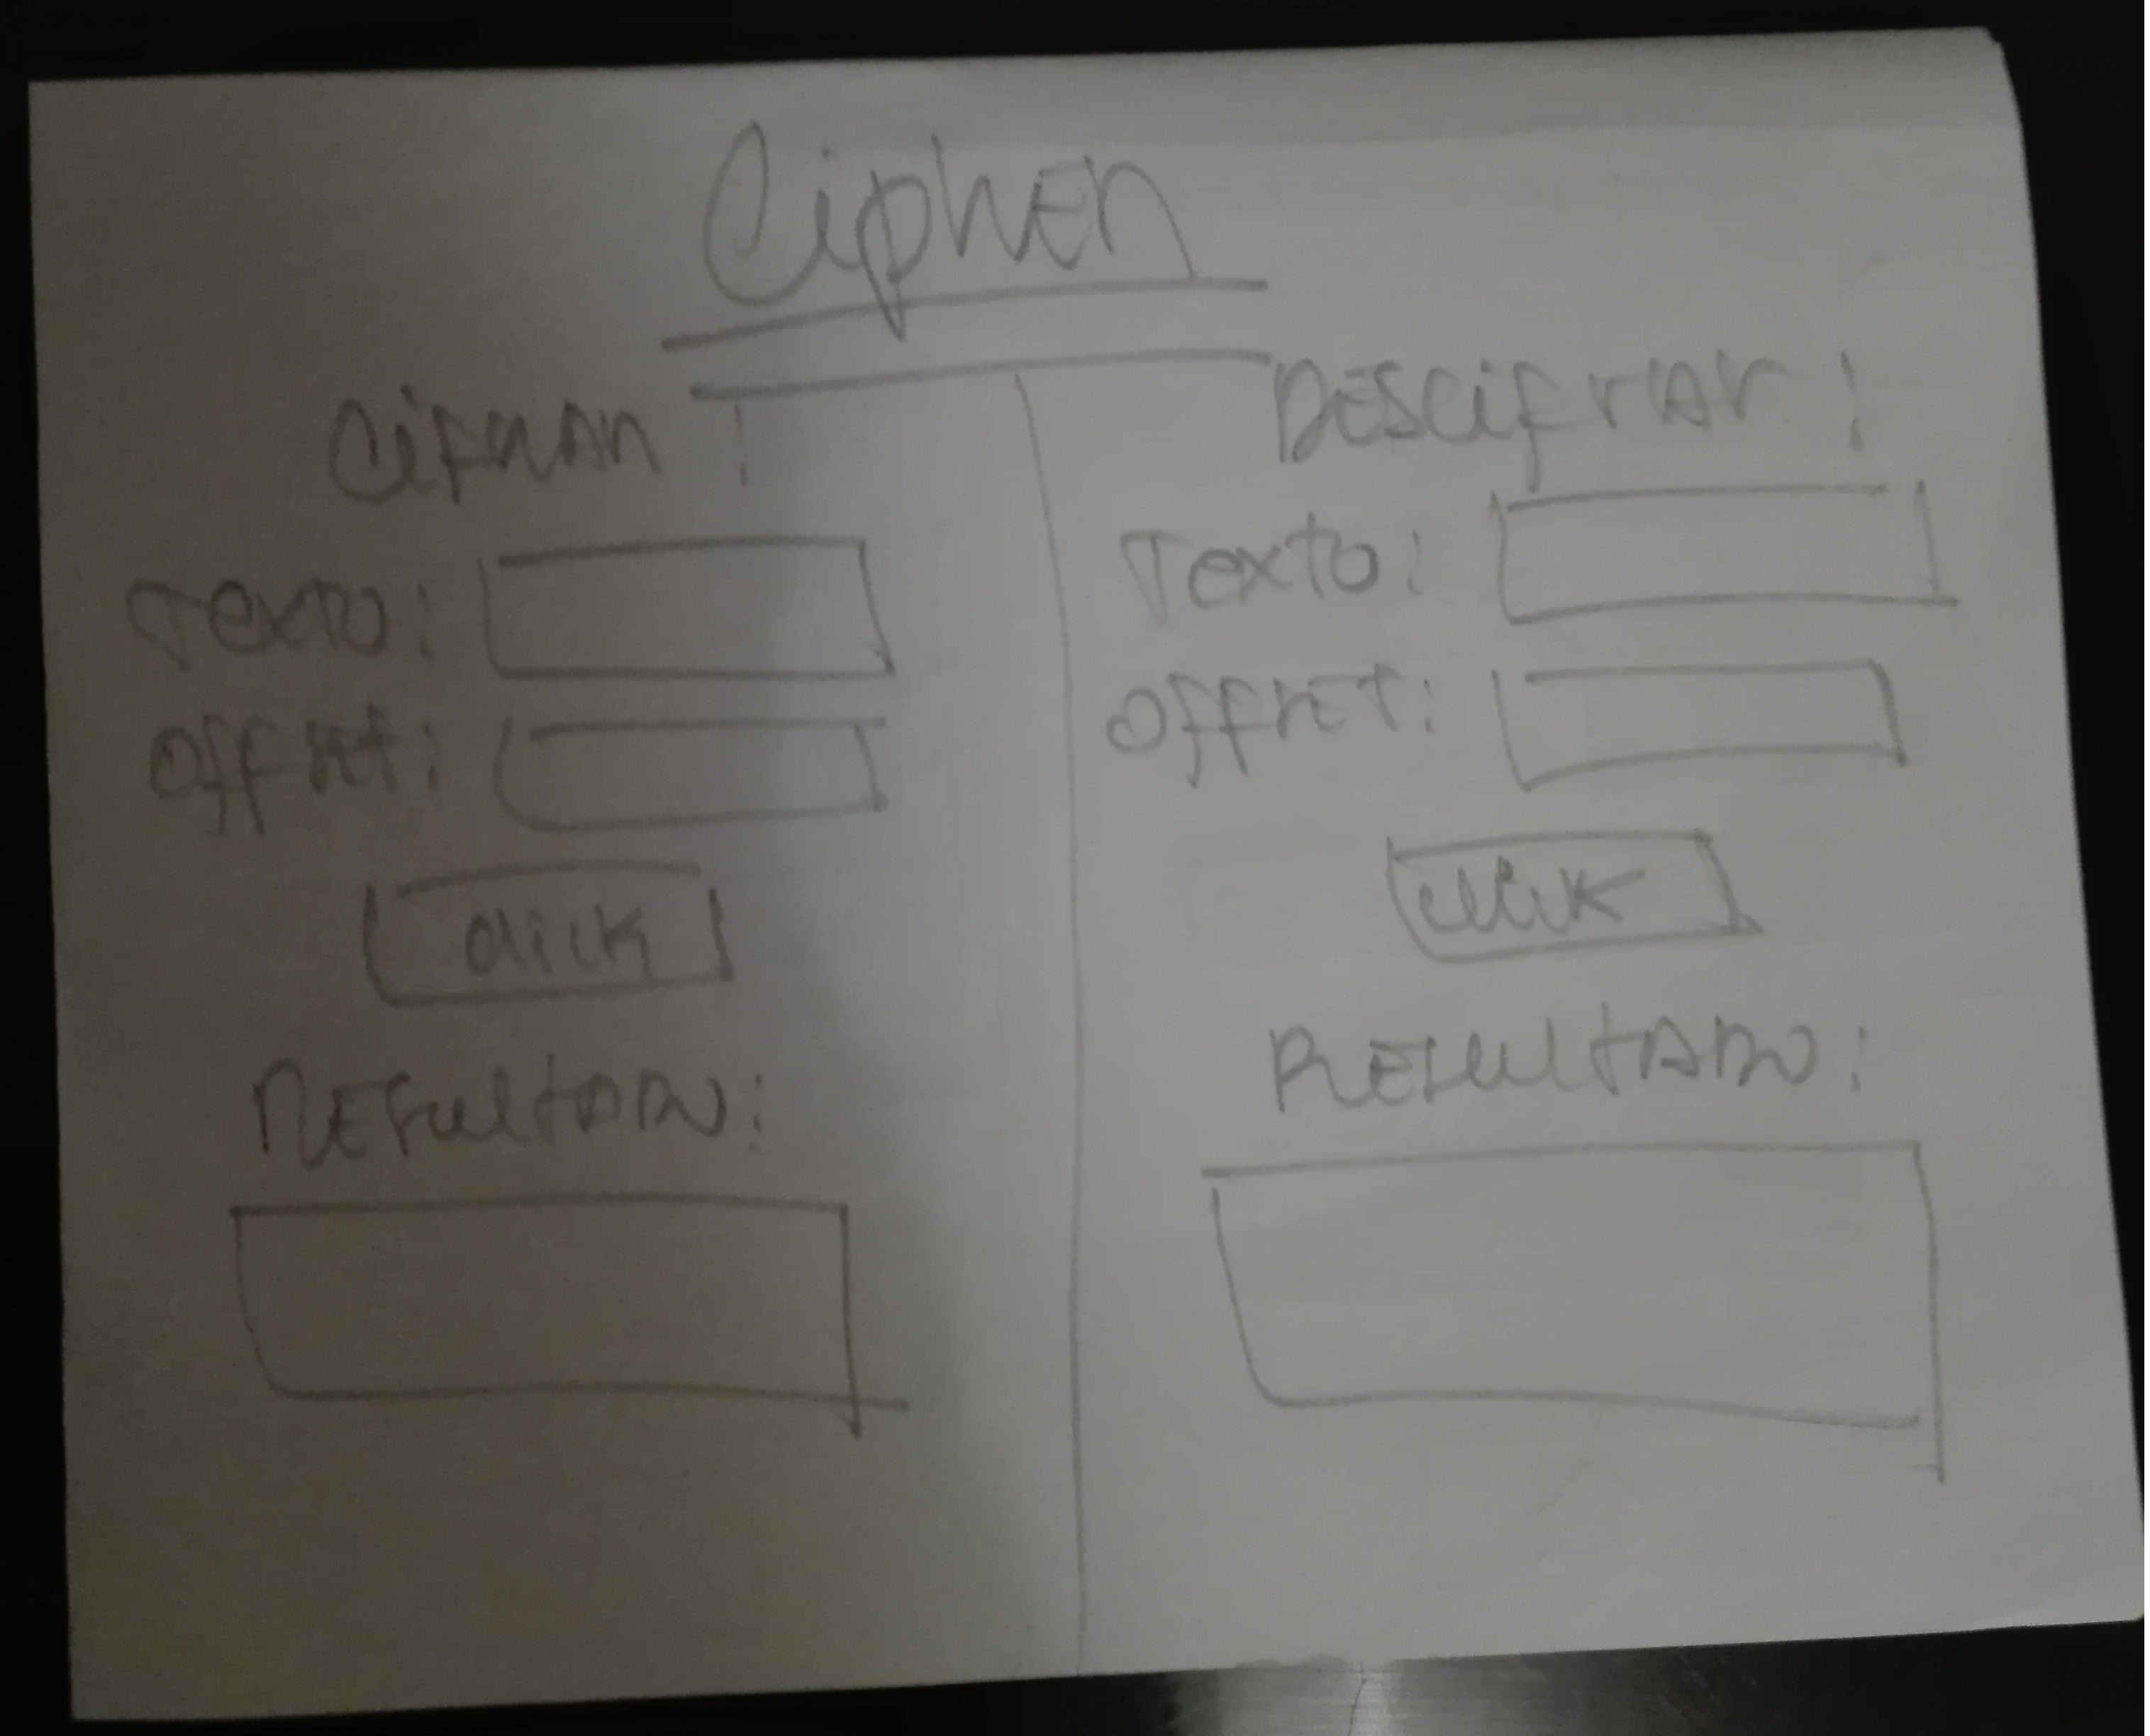 Cipher
Cifrar :
Texto:
Offset:
click
Resultado:
Descifrar :
Texto:
Offset:
click
Resultado: